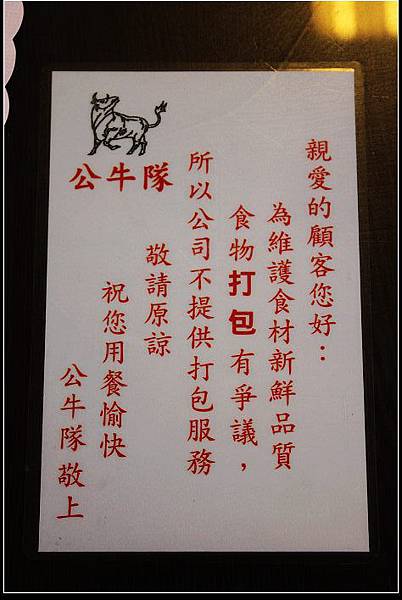 公牛隊
親愛的顧客您好：
為維護食材新鮮品質
食物打包有爭議，
所以公司不提供打包服務
敬請原諒
祝您用餐愉快
公牛隊敬上